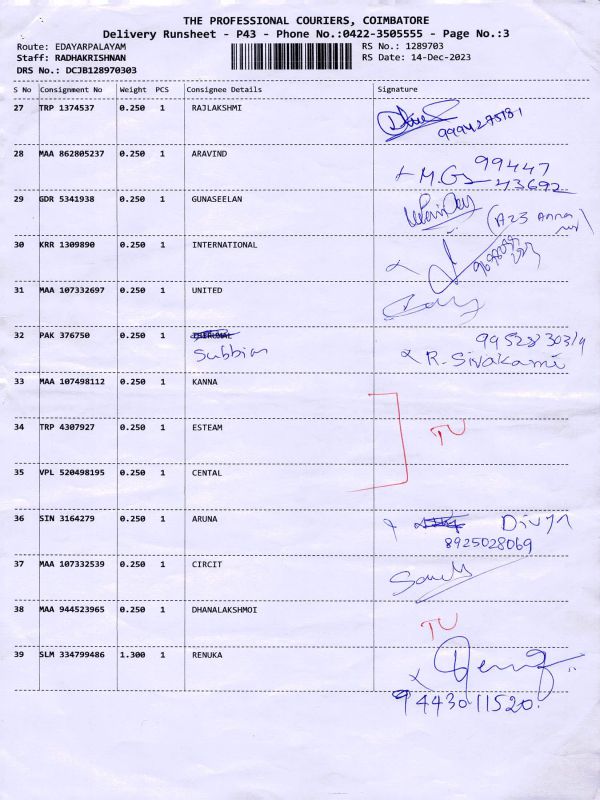 THE PROFESSIONAL COURIERS, COIMBATORE
Delivery Runsheet - P43 - Phone No.:0422-3505555 - Page No.:3
Route: EDAYARPALAYAM RS No.: 1289703
Staff: RADHAKRISHNAN RS Date: 14-Dec-2023
DRS No.: DCJB128970303
S No Consignment No Weight PCS Consignee Details Signature
27 TRP 1374537 0.250 1 RAJLAKSHMI
28 MAA 862805237 0.250 1 ARAVIND
99447
M.G 43692
29 GDR 5341938 0.250 1 GUNASEELAN
(A23 Anna
30 KRR 1309890 0.250 1 INTERNATIONAL
31 MAA 107332697 0.250 1 UNITED
32 PAK 376750 0.250 1
Subbian R. Sivakami
33 MAA 107498112 0.250 1 KANNA
34 TRP 4307927 0.250 1 ESTEAM TU
35 VPL 520498195 0.250 1 CENTAL
36 SIN 3164279 0.250 1 ARUNA Divya
8925028069
37 MAA 107332539 0.250 1 CIRCIT
38 MAA 944523965 0.250 1 DHANALAKSHMOI TU
39 SLM 334799486 1.300 1 RENUKA
9443011520.